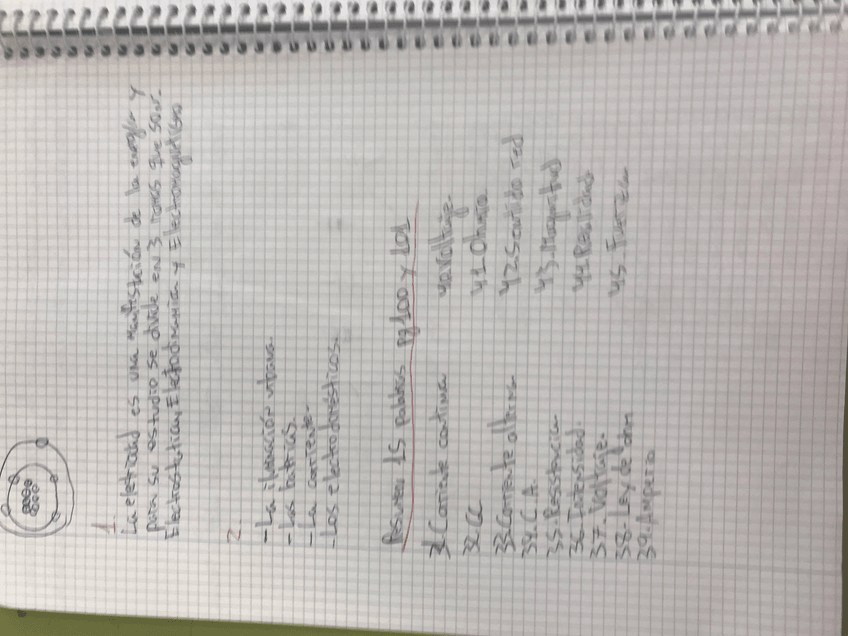 1.
La eletricidad es una manifistación de la energía y
para su estudio se divide en 3 ramas que son.
Electrostatica, Electrodinamica y Electromagnetismo
2.
- La iluminación urbana.
- Las batrias.
- La corriente.
- Los electrodomésticos.
Resumen 15 palabras pg 100 y 101
31. Corriente continua
32. CC
33. Corriente alterna
34. C.A.
35. Resistencia
36. Intensidad.
37. Voltaje.
38. Ley de ohm
39. Amperio
40. Voltaje.
41. Ohmio
42. Sentido real
43. Magnitud
44. Realidad
45. Fuerza